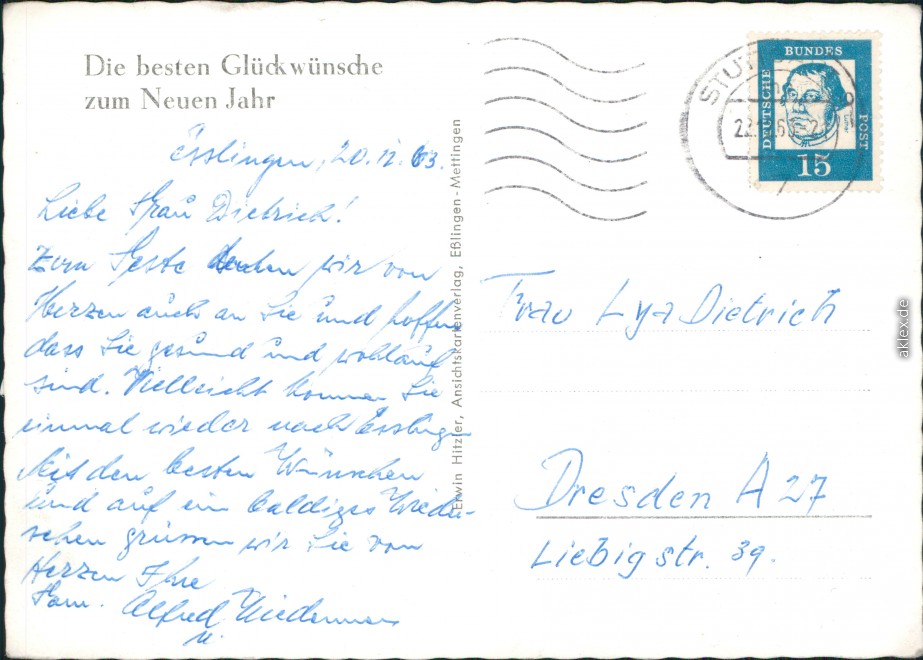 Die besten Glückwünsche
zum Neuen Jahr
Esslingen, 20.12.63.
Liebe Frau Dietrich!
Zum Feste denken wir von
Herzen auch an Sie und hoffen
dass Sie gesund und wohlauf
sind. Vielleicht kommen Sie
einmal wieder nach Esslingen
Mit den besten Wünschen
und auf ein baldiges Wieder-
sehen grüssen wir Sie von
Herzen Ihre
Fam. Alfred
u.
Erwin Hitzler, Ansichtskartenverlag, Eßlingen-Mettingen
STUT
DEUTSCHE
BUNDES
POST
Luther
15
Frau Lya Dietrich
Dresden A 27
Liebigstr. 39.
aklex.de